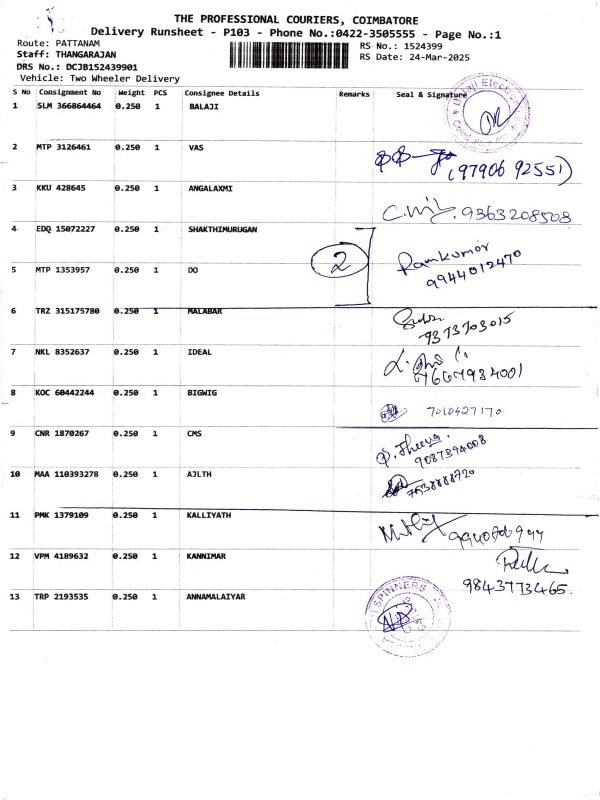 THE PROFESSIONAL COURIERS, COIMBATORE
Delivery Runsheet - P103 - Phone No.:0422-3505555 - Page No.:1
Route: PATTANAM
RS No.: 1524399
Staff: THANGARAJAN
RS Date: 24-Mar-2025
DRS No.: DCJB152439901
Vehicle: Two Wheeler Delivery
S No Consignment No Weight PCS Consignee Details Remarks Seal & Signature
1 SLM 366864464 0.250 1 BALAJI
2 MTP 3126461 0.250 1 VAS
(97906 92551)
3 KKU 428645 0.250 1 ANGALAXMI
9363208508
4 EDQ 15072227 0.250 1 SHAKTHIMURUGAN
Ramkumar
9944012470
2
5 MTP 1353957 0.250 1 DO
6 TRZ 315175780 0.250 1 MALABAR
9373703015
7 NKL 8352637 0.250 1 IDEAL
7667934001
8 KOC 60442244 0.250 1 BIGWIG
7010427170
9 CNR 1870267 0.250 1 CMS
9087394008
10 MAA 110393278 0.250 1 AJLTH
11 PMK 1379109 0.250 1 KALLIYATH
12 VPM 4189632 0.250 1 KANNIMAR
9843773465.
13 TRP 2193535 0.250 1 ANNAMALAIYAR
SPINNERS